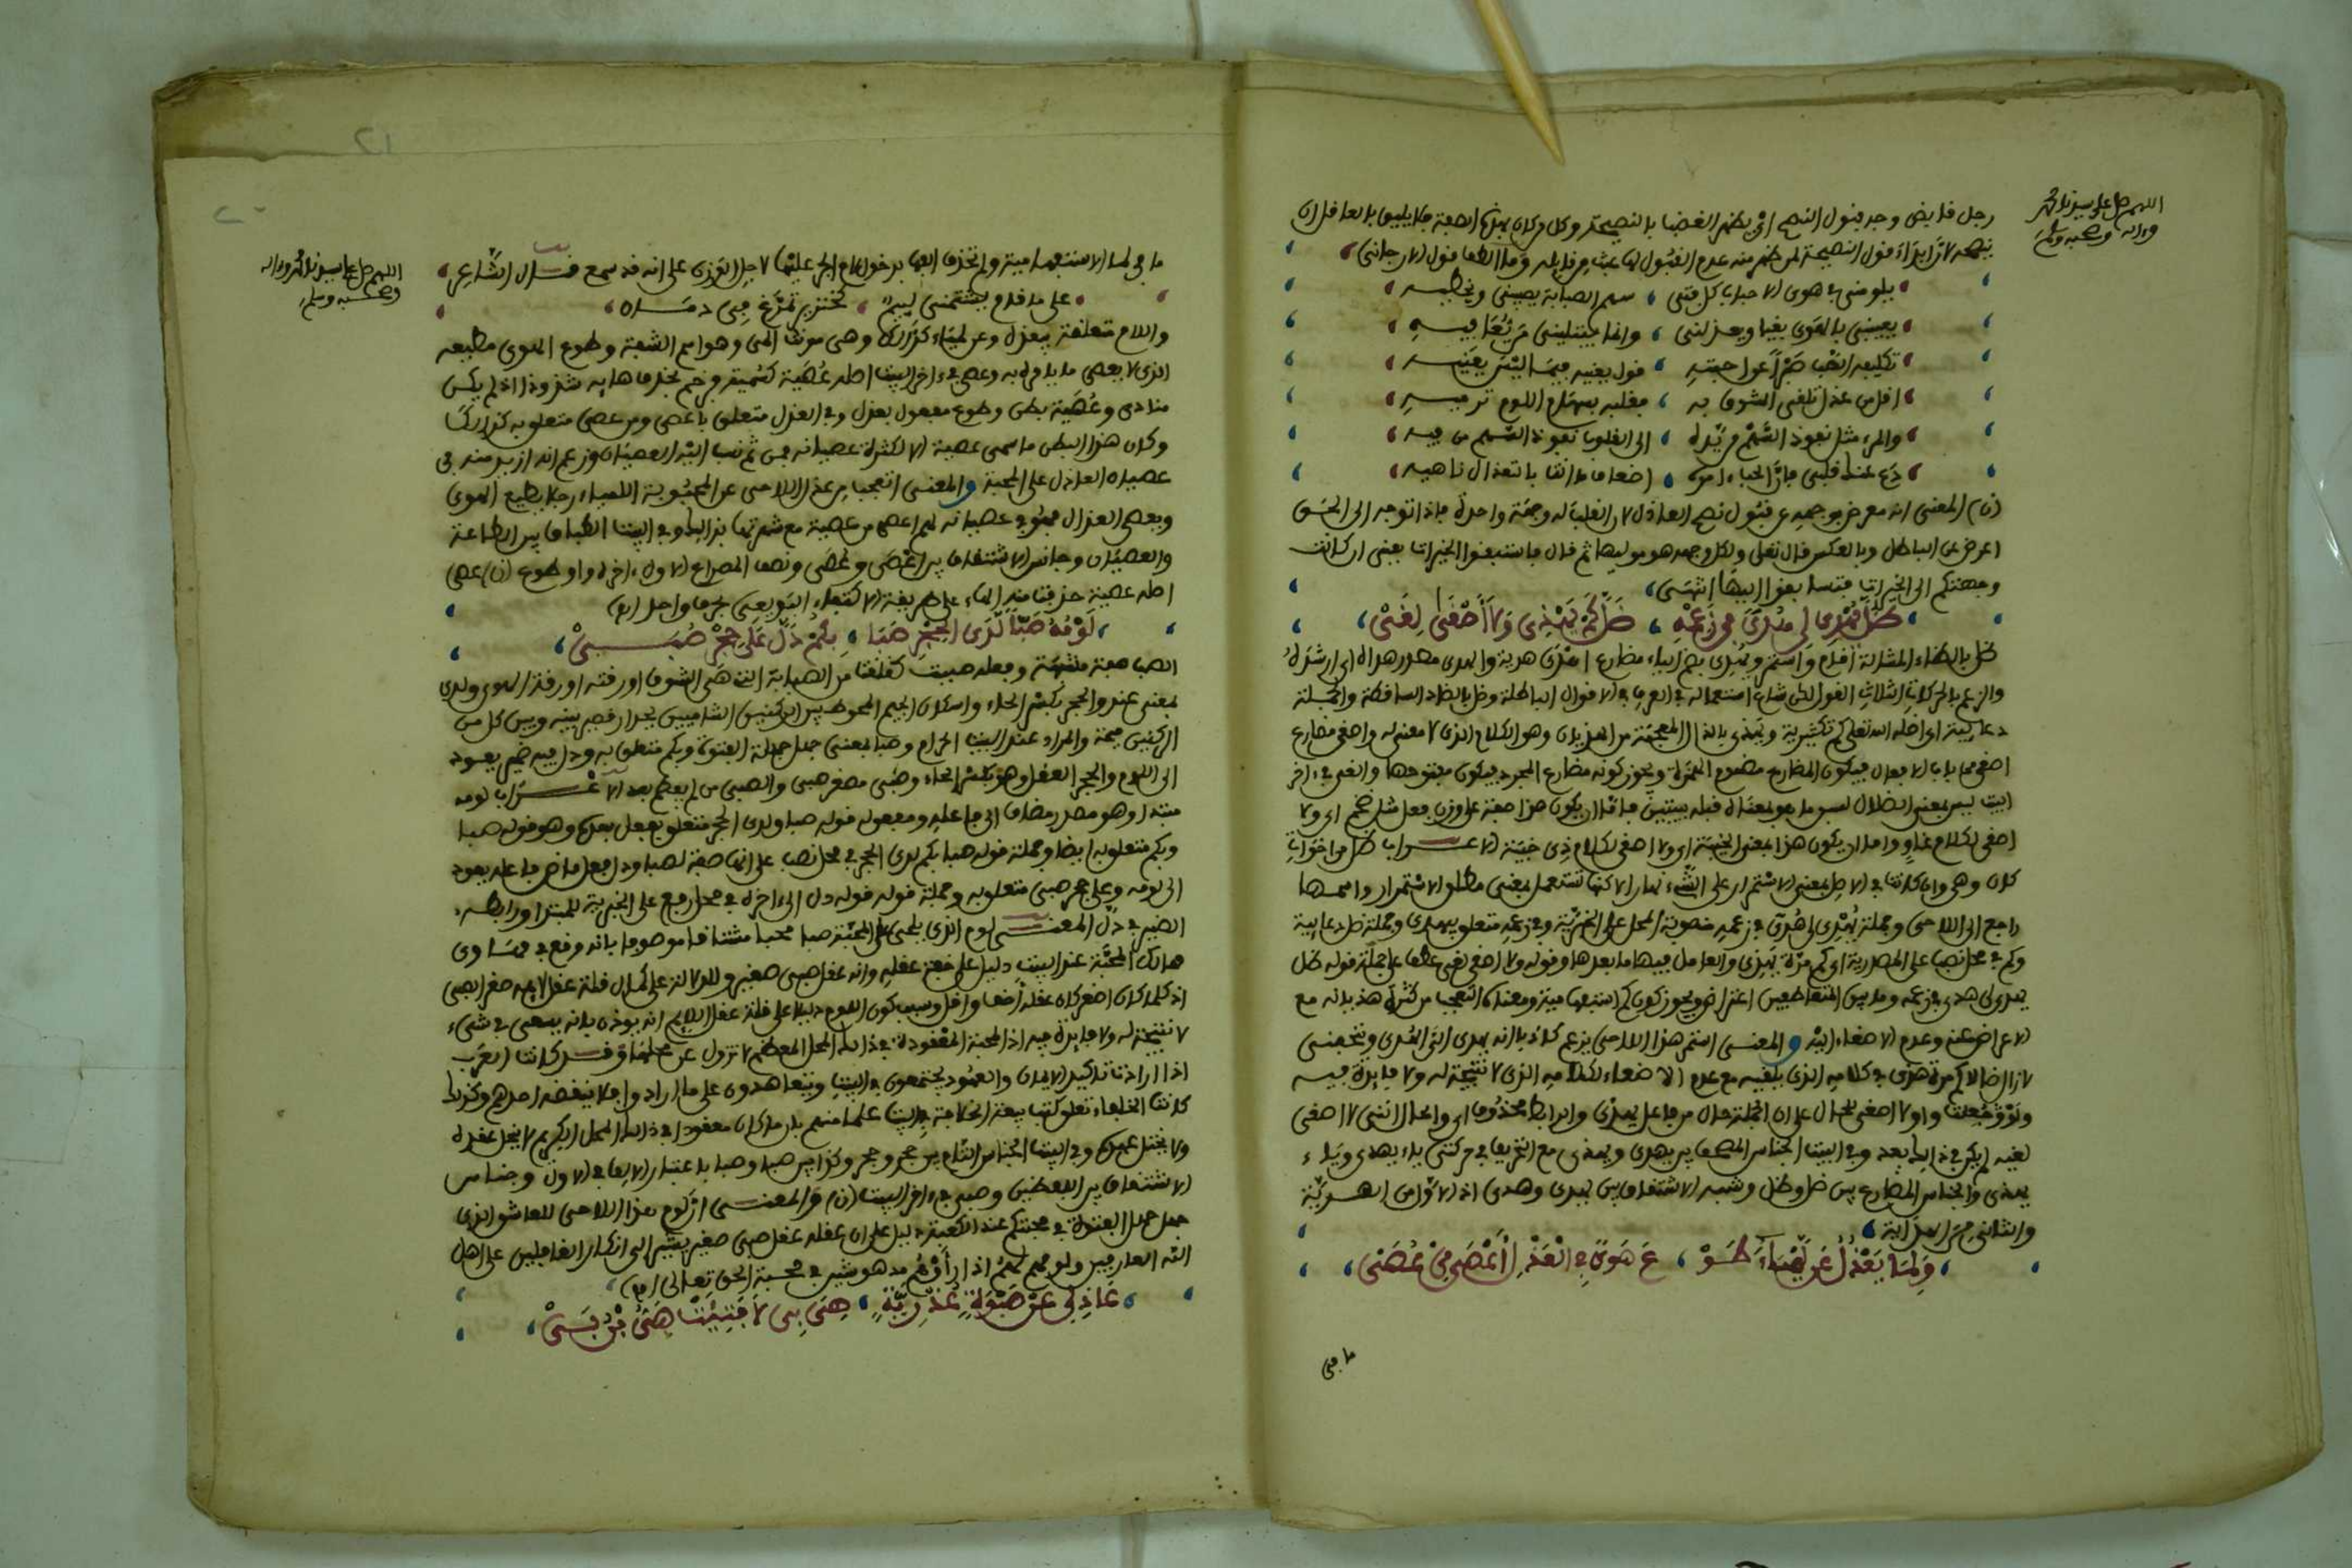 اللهم صل على سيدنا محمد
وءاله وصحبه وسلم
رجل فلا يضى وجد بقول النصح اي يظهر الغضب بالنصيحة وكل من كان بهذه الصفة فلا يليق بالعاقل ان
ينصحه لان ابداء قول النصيحة لمن ظهر منه عدم القبول لها عبث من قايله وما الطف قول الارجاني
يلومني في هوى الاحباب كل فتى سهم الصبابة يصيبني ويخطيه
يعيبني بالهوى بغيا ويعذلني وانما يبتليني من يعافيه
تكليف الصب صبرا عن احبته قول يعنيه فيما ليس يعنيه
اقل من عذل تلقى المشوق به فقلبه بسهام اللوم ترميه
والمرء مثل نفوذ السهم من يده الى القلوب نفوذ السهم من فيه
دع عنك قلبي فان الحب ءامره اضعاف ما انت بالتعذال ناهيه
(ن) المعنى انه معرض بوجهه عن قبول نصح العاذل لان القلب له وجهة واحدة فاذا توجه الى الحق
اعرض عن الباطل وبالعكس قال تعلى ولكل وجهة هو موليها ثم قال فاستبقوا الخيرات يعنى ان كانت
وجهتكم الى الخيرات فتسابقوا اليها انتهى
ظل يهدي لي هدى في زعمه ضل كم يهذي ولا اصغي لغي
ظل بالظاء المشالة اقام واستمر ويهدي بضم الياء مضارع اهدى هدية والهدى مصدر هداه اي ارشده
والزعم بالحركات الثلاث القول لكن شاع استعماله في العرف في الاقوال الباطلة وضل بالضاد الساقطة والجملة
دعايية اي اضله الله تعلى كم تكثيرية ويهذي بالذال المعجمة من الهذيان وهو الكلام الذي لا معنى له واصغي مضارع
اصغى من باب الافعال فيكون المضارع مضموم الهمزة ويجوز كونه مضارع المجرد فيكون مفتوحها والغي في ءاخر
البيت ليس بمعنى الضلال ليس ما هو بمعناه قبله ببيتين فاما ان يكون هذا صفة على وزن فعل مثل ضخم اي ولا
اصغي لكلام غاو واما ان يكون هذا بمعنى الخيبة اي ولا اصغي لكلام ذي خيبة الاعراب ظل من اخوات
كان وهي وان كانت في الاصل بمعنى الاستمرار على الشيء نهارا لاكنها تستعمل بمعنى مطلق الاستمرار واسمها
راجع الى اللاحي وجملة يهدي لي هدى في زعمه منصوبة المحل على الخبرية وفي زعمه متعلق بيهدي وجملة ضل دعايية
وكم في محل نصب على المصدرية اي كم مرة يهذي والعامل فيها ما بعدها وقوله ولا اصغي لغي عطف على جملة قوله ظل
يهدي لي هدى في زعمه وما بين المتعاطفين اعتراض ويجوز كون كم استفهامية ومعناه التعجب من كثرة هذيانه مع
الاعراض عنه وعدم الاصغاء اليه والمعنى استمر هذا اللاحي يزعم كاذبا انه يهدي الي الهدى ويتحفني
لغيه لم يكن في ذلك بعد وفي البيت الجناس المصحف بين يهدي ويهذي مع التحريف في حركتي ياء يهدي وياء
يهذي والجناس المضارع بين ضل وظل وشبه الاشتقاق بين يهدي وهدى اذ الاول من الهدية
والثاني من الهداية
ولما يعذل عن لمياء طو ع هوى في العذل اعصى من عصي
ما في
اللهم صل على سيدنا محمد وءاله
وصحبه وسلم
ما في لما الاستفهامية ولم تحذف الفها بدخول لام الجر عليها لاجل الوزن على انه قد سمع قال الشاعر
على ما قام يشتمني لييم كخنزير تمرغ في دمان
واللام متعلقة بيعذل وعن لمياء كذلك وهي مونث المى وهو اسم الشفة وطوع الهوى مطيعه
الذي لا يعصى ما يامره به وعصي في ءاخر البيت اصله عصية كسمية فرخم بحذف هايه شذوذا اذ لم يكن
منادى وعصية بطن وطوع مفعول يعذل وفي العذل متعلق باعصى ومن عصي متعلق به كذلك
وكان هذا البطن ما سمي عصية الا لكثرة عصيانه فمن ثم نسب اليه العصيان وزعم انه ازيد منه في
عصيان العاذل على المحبة والمعنى اتعجب من عذل اللاحي عن المحبوبة اللمياء رجلا يطيع الهوى
ويعصى العذال فهو في عصيانه لهم اعصى من عصية مع شهرتها بذلك وفي البيت الطباق بين الطاعة
والعصيان وجناس الاشتقاق بين اعصى وعصي ونصف المصراع الاول ءاخره واو طوع (ن) عصي
اصله عصية حذفت منه الهاء على طريقة الاكتفاء البديعي بحرف واحد (انتهى)
لومه صبا لدى الحجر صبا بكم دل على حجر صبي
الصب صفة مشبهة وفعله صببت كعلقت من الصبابة التي هي الشوق او رقته او رقة الهوى ولدى
بمعنى عند والحجر بكسر الحاء واسكان الجيم المحوط بين الركنين الشاميين بجدار قصير بينه وبين كل من
الركنين فتحة والمراد عند البيت الحرام وصبا بمعنى جهل جهلة الفتوة وبكم متعلق به ودل فيه ضمير يعود
الى اللوم والحجر العقل وهو بكسر الحاء وصبي مصغر صبي والصبي من لم يفطم بعد الاعراب لومه
مبتدا وهو مصدر مضاف الى فاعله ومفعوله قوله صبا ولدى الحجر متعلق بفعل بعده وهو قوله صبا
وبكم متعلق به ايضا وجملة قوله صبا بكم لدى الحجر في محل نصب على انها صفة لصبا ودل فعل ماض فاعله يعود
الى لومه وعلى حجر صبي متعلق به وجملة قوله دل الى ءاخره في محل رفع على الخبرية للمبتدا ورابطه
الضمير في دل المعنى لوم الذي يلحي على المحبة صبا محبا مشتاقا موصوفا بانه وقع في مهاوي
هاتيك المحبة عند البيت دليل على خفة عقله وانه عقل صبي صغير وللدلالة على كمال قلة عقل لايمه صغر الصبي
اذ كلما كان اصغر كان عقله اضعف واقل وسبب كون اللوم دليلا على قلة عقل اللايم انه يوذن بانه يسعى في شيء
لا نتيجة له ولا فايدة فيه اذ المحبة المعقودة في ذلك المحل المعظم لا تزول عن محلها وقد كانت العرب
اذا ارادت تاكيد الايمان والعهود يجتمعون بالبيت ويتعاهدون على ما ارادوا فلا ينقضه احدهم وكذلك
ولا يختل عهده وفي البيت الجناس التام بين حجر وحجر وكذا بين صبا وصبا باعتبار الالف في الاول وجناس
الاشتقاق بين اللفظين وصبي في ءاخر البيت (ن) والمعنى ان لوم هذا اللاحي للعاشق الذي
جهل جهل الفتوة في محبتكم عند الكعبة دليل على ان عقله عقل صبي صغير يشير الى انكار الغافلين على اهل
الله العارفين ولومهم لهم اذا راوهم مدهوشين في محبة الحق تعالى (انتهى)
عاذلي عن صبوة عذرية هي بي لا فتيت هي بن بي